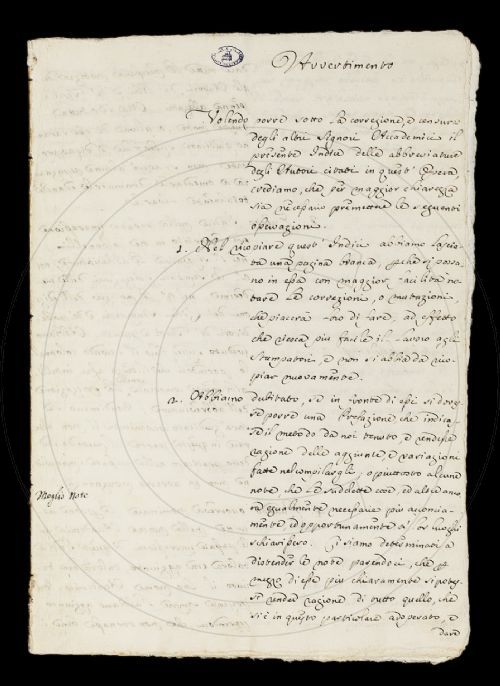 Avvertimento
Volendo porre sotto la correzione, e censura
degli altri Signori Accademici il
presente Indice delle abbreviature
degli Autori citati in quest' Opera
crediamo, che per maggior chiarezza
sia necessario premettere le seguenti
operazioni.
1. Nel ricopiare questi Indici abbiamo lascia-
ta una pagina bianca, perche si possa-
no in essa con maggior facilità no-
tare le correzioni, o mutazioni
che piacerà loro di fare, ad effetto
che riesca più facile il lavoro agli
Stampatori, e non si abbia da rico-
piar nuovamente.
2. Abbiamo dubitato, se in fronte di essi si doves-
se porre una Prefazione che indicas-
se il metodo da noi tenuto, e rendesse
ragione delle aggiunte, e variazioni
fatte nel compilargli, o piuttosto alcune
note che le suddette cose, ed altre anco-
ra egualmente necessarie più acconcia-
mente, ed opportunamente a' lor luoghi
schiarissero. Ci siamo determinati a
distender le note parendoci, che per
mezzo di esse più chiaramente si potes-
se render ragione di tutto quello, che
si è in questo particolare adoperato, e
dare
Meglio Note